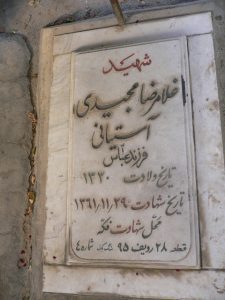 شهید
غلامرضا مجیدی
آستانی
فرزند عباس
تاریخ ولادت ۱۳۳۰
تاریخ شهادت ۱۳۶۱/۱۱/۲۹
محل شهادت فکه
قطعه ۲۸ ردیف ۹۵ شماره ۴